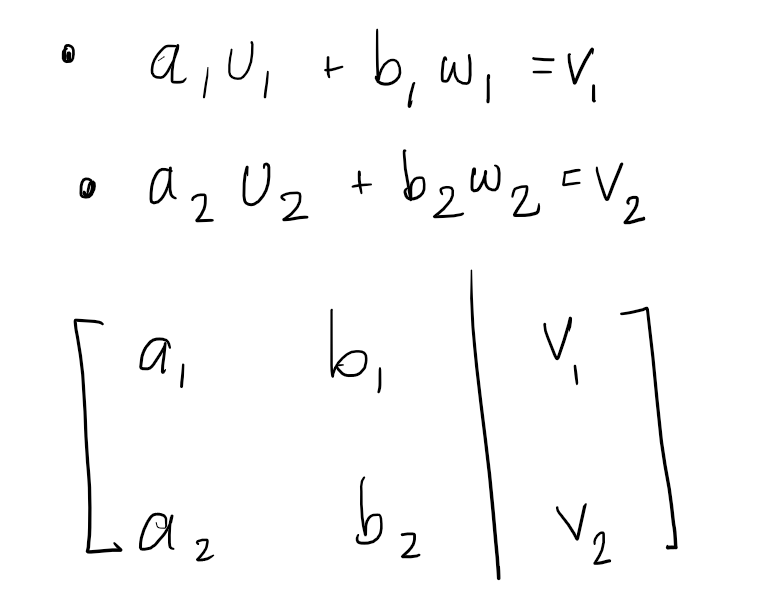 • a₁ u₁ + b₁ w₁ = v₁
• a₂ u₂ + b₂ w₂ = v₂
[ a₁ b₁ | v₁ ]
[ a₂ b₂ | v₂ ]